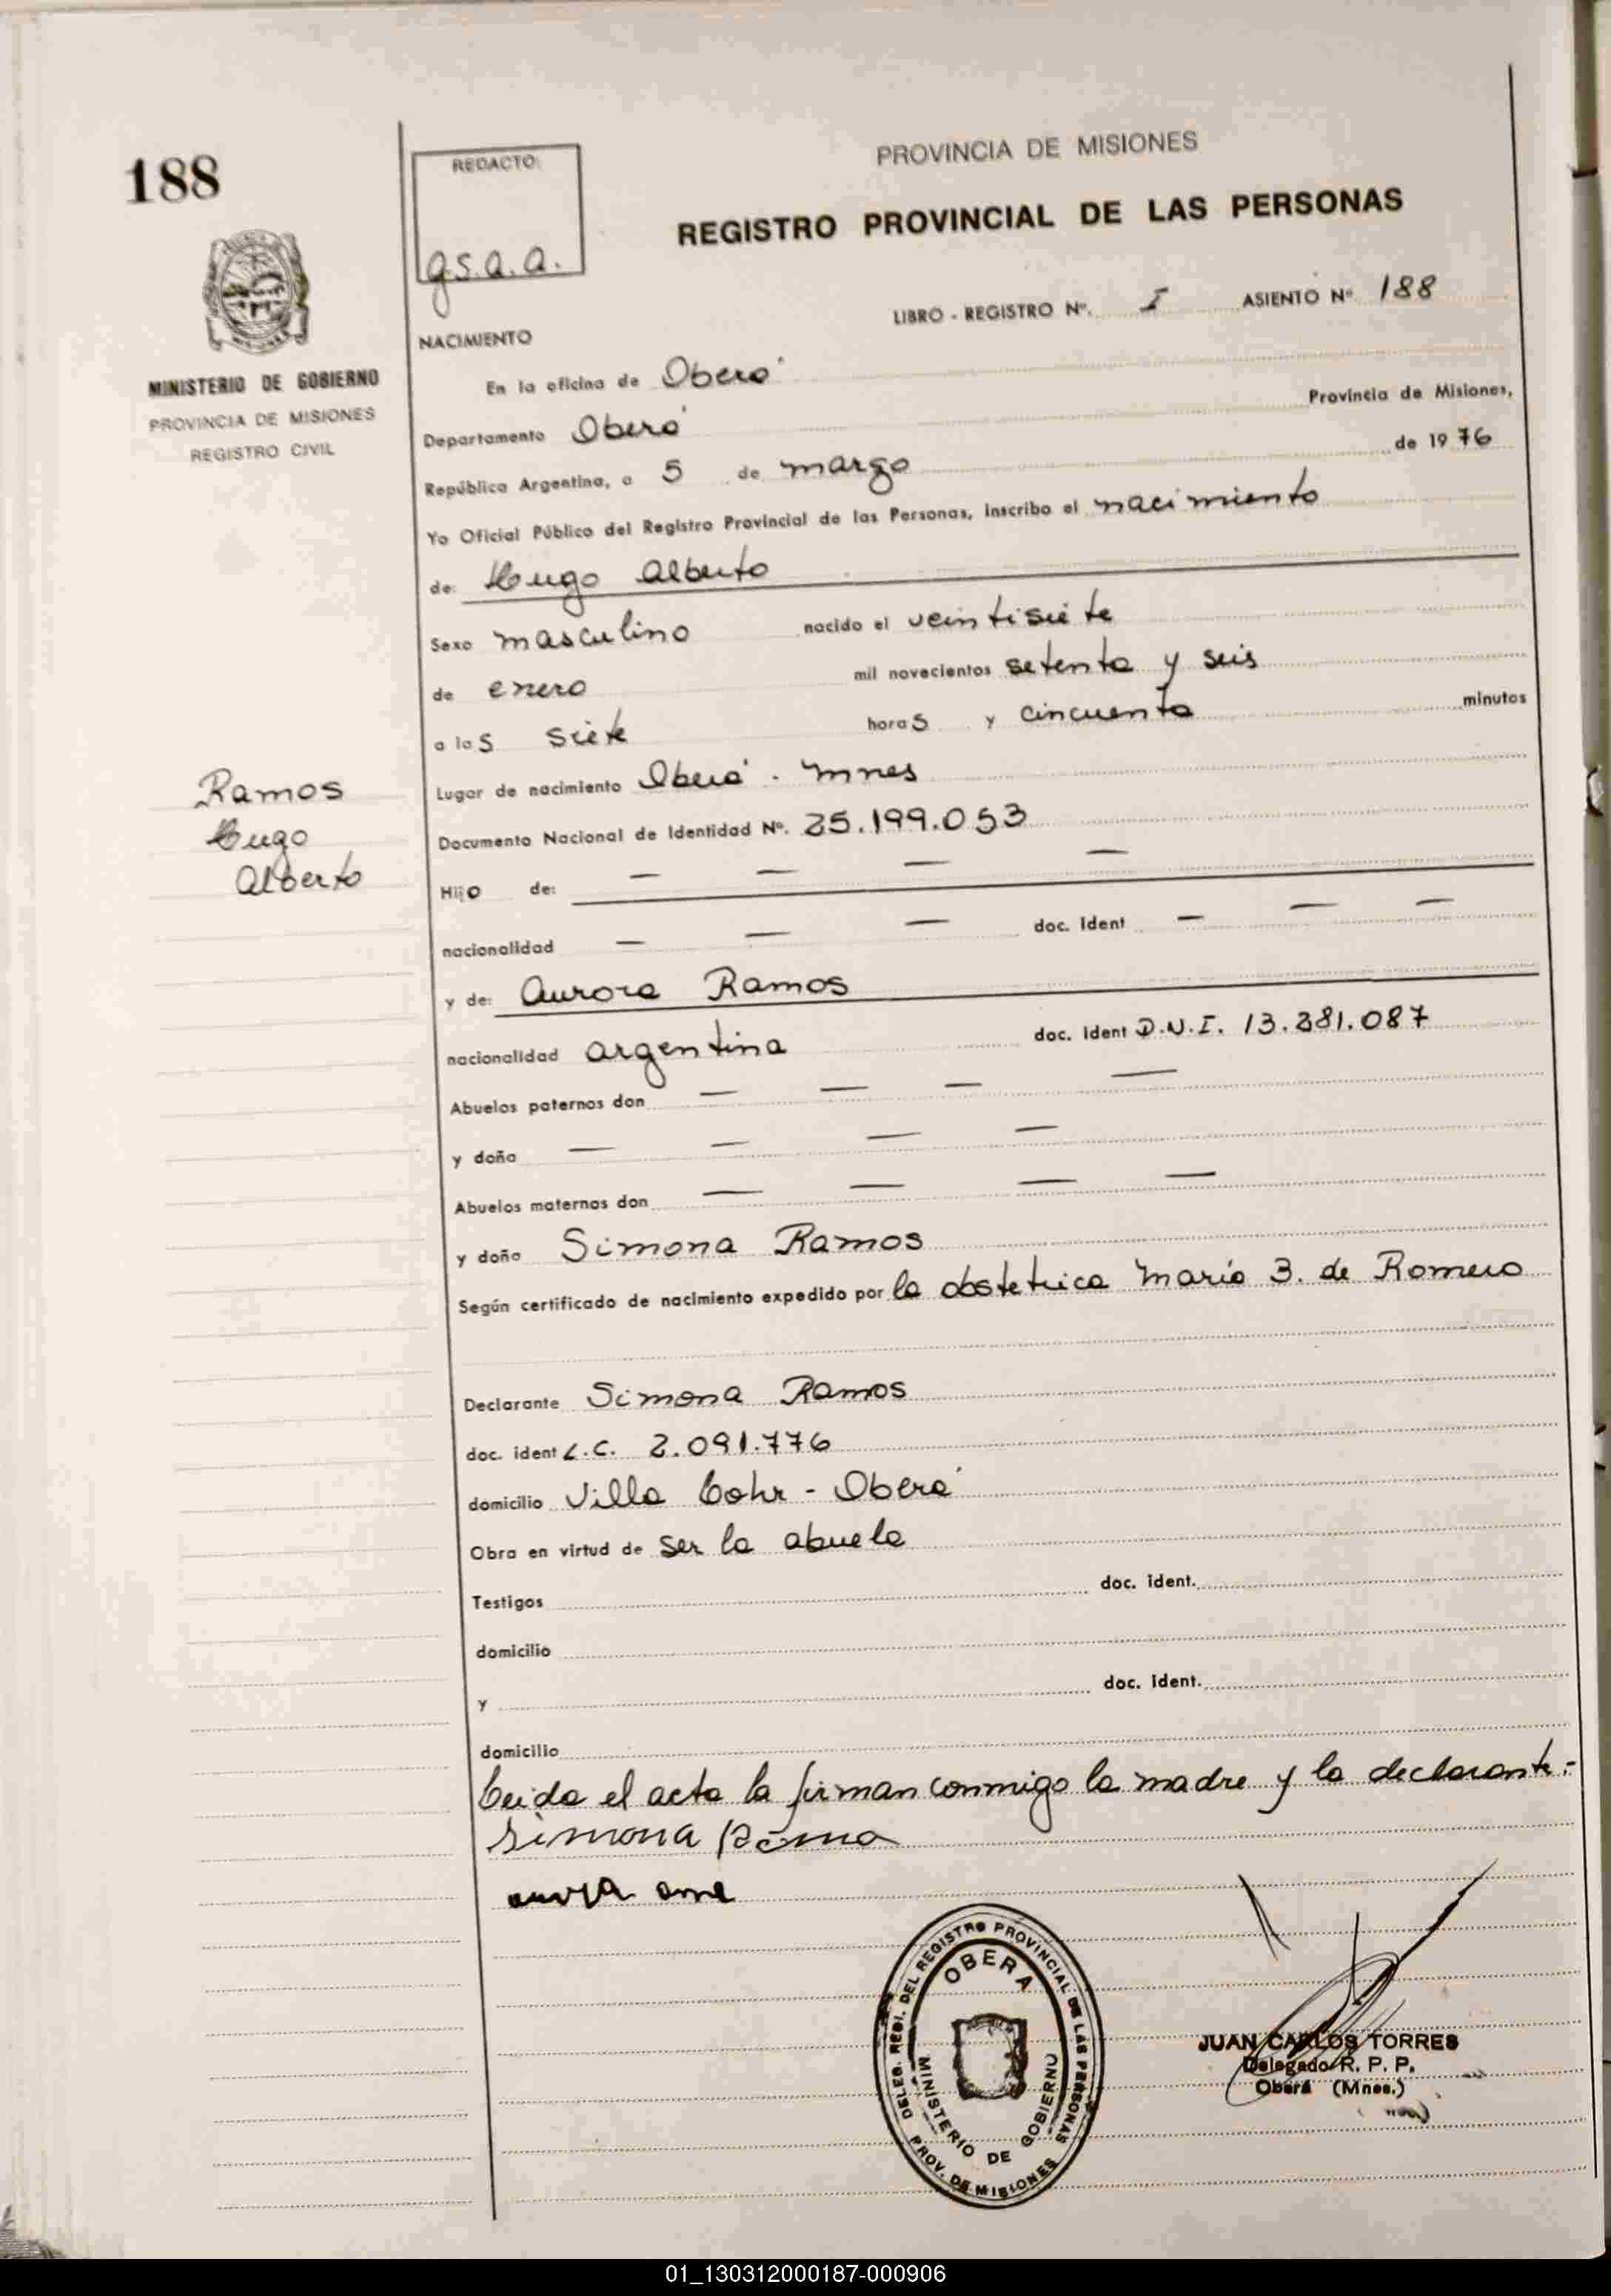 188
REDACTO:
g.s.a.a.
PROVINCIA DE MISIONES
REGISTRO PROVINCIAL DE LAS PERSONAS
MINISTERIO DE GOBIERNO
PROVINCIA DE MISIONES
REGISTRO CIVIL
LIBRO - REGISTRO Nº. I ASIENTO Nº 188
NACIMIENTO
En la oficina de Oberá
Provincia de Misiones,
Departamento Oberá
República Argentina, a 5 de marzo de 1976
Yo Oficial Público del Registro Provincial de las Personas, inscribo el nacimiento
de: Hugo Alberto
Sexo masculino nacido el veintisiete
de enero mil novecientos setenta y seis
a las siete horas y cincuenta minutos
Lugar de nacimiento Oberá - Mnes
Documento Nacional de Identidad Nº. 25.199.053
Ramos
Hugo
Alberto
Hijo de: — — — —
nacionalidad — — — doc. ident — — —
y de: Aurora Ramos
nacionalidad argentina doc. ident D.N.I. 13.381.087
Abuelos paternos don — — — —
y doña — — — —
Abuelos maternos don — — — —
y doña Simona Ramos
Según certificado de nacimiento expedido por la obstetrica María 3. de Romero
Declarante Simona Ramos
doc. ident L.C. 2.091.776
domicilio Villa Lohr - Oberá
Obra en virtud de ser la abuela
Testigos doc. ident.
domicilio
y doc. ident.
domicilio
Leida el acta la firman conmigo la madre y la declarante.-
Simona
DELEG. REGI. DEL REGISTRO PROVINCIAL DE LAS PERSONAS
OBERA
MINISTERIO DE GOBIERNO
PROV. DE MISIONES
JUAN CARLOS TORRES
Delegado R. P. P.
Oberá (Mnes.)
01_130312000187-000906